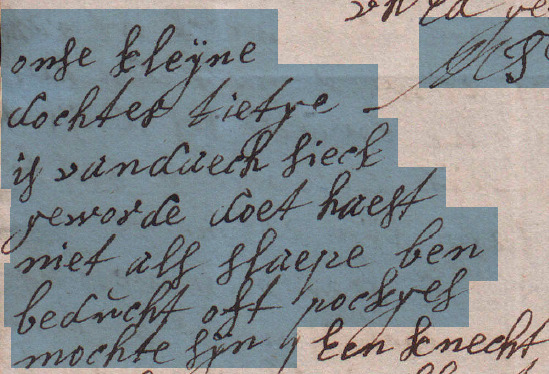 onse kleÿne
dochter tietye
is vandaech sieck
geworde doet haest
niet als slaepe ben
beducht oft pockyes
mochte sÿn Een knecht